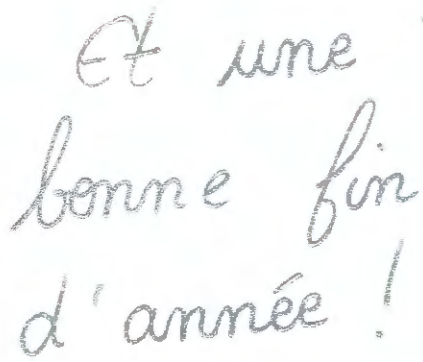 Et une
bonne fin
d'année !